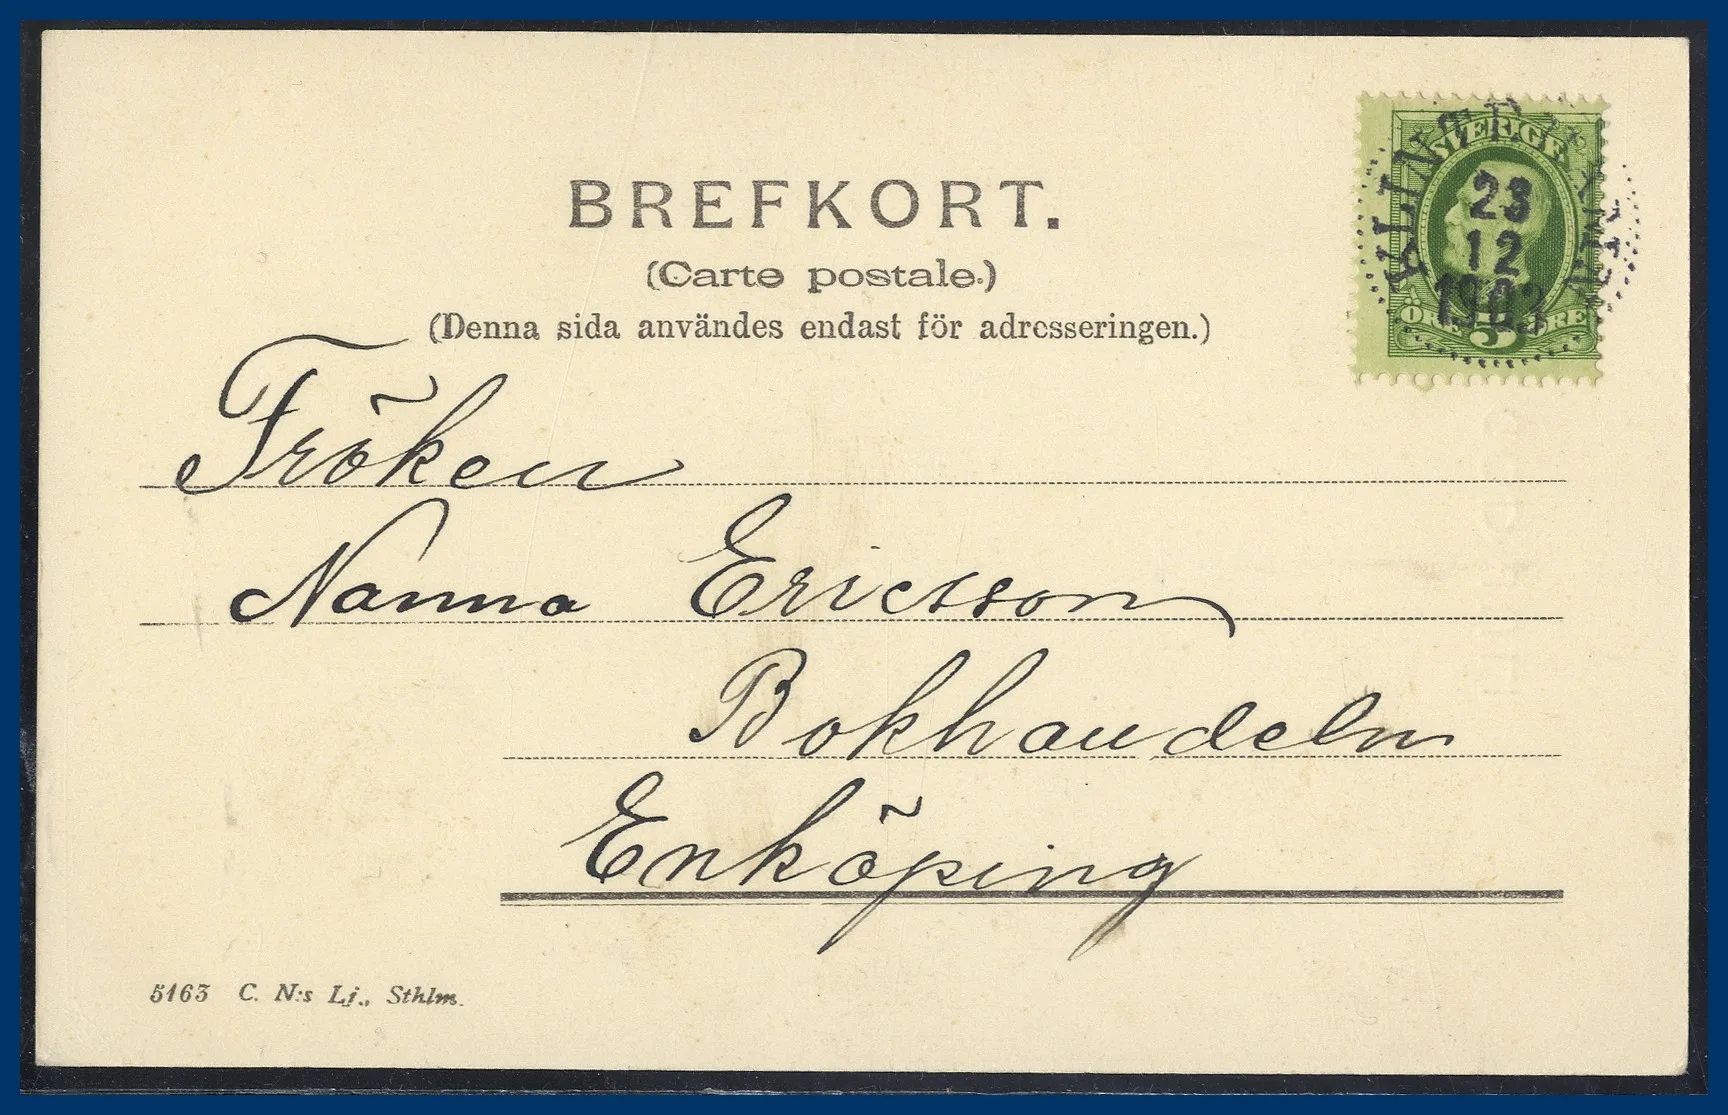 BREFKORT.
(Carte postale.)
(Denna sida användes endast för adresseringen.)
SVERIGE
23
12
1903
ÖRE 5 ÖRE
Fröken
Nanna Ericsson
Bokhandeln
Enköping
5163 C. N:s Lj., Sthlm.